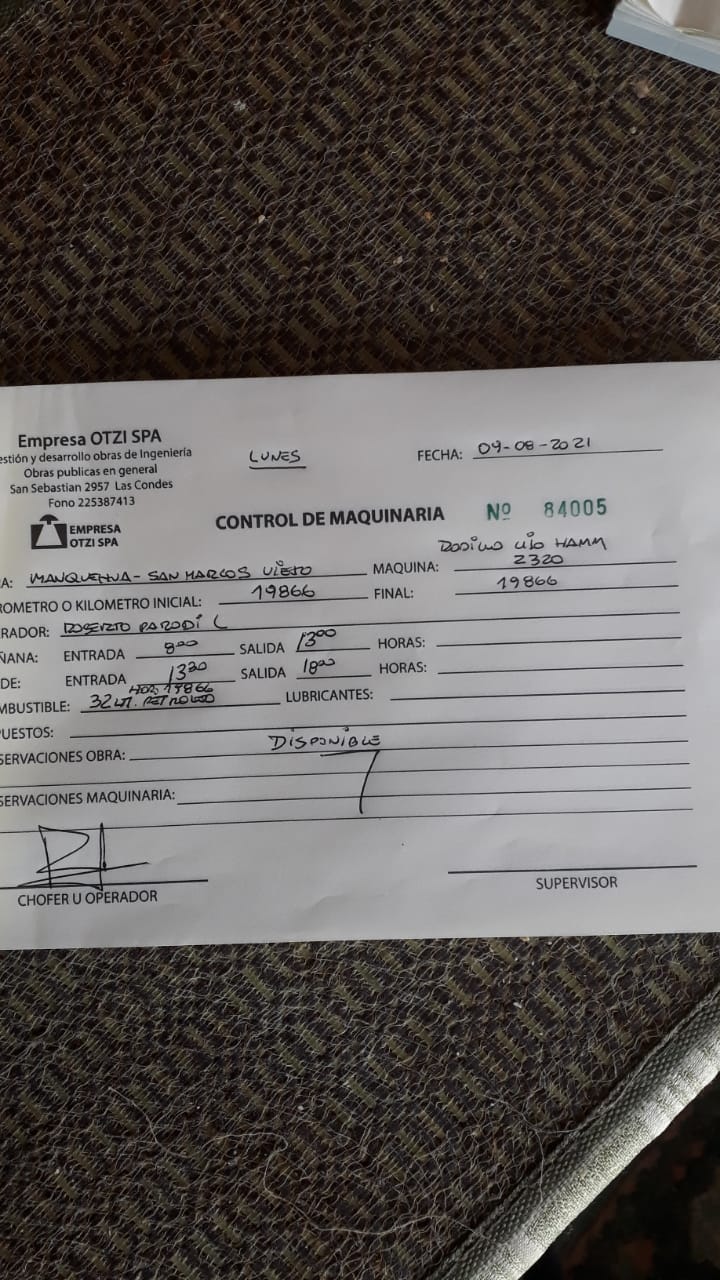 Empresa OTZI SPA
estión y desarrollo obras de Ingeniería
Obras publicas en general
San Sebastian 2957 Las Condes
Fono 225387413
EMPRESA
OTZI SPA
LUNES
FECHA: 09-08-2021
CONTROL DE MAQUINARIA Nº 84005
RODILLO HAMM
A: MANQUEHUA - SAN MARCOS VIEJO MAQUINA: 2320
ROMETRO O KILOMETRO INICIAL: 19866 FINAL: 19866
RADOR: ROBERTO PARODI L
ÑANA: ENTRADA 8:00 SALIDA 13:00 HORAS:
DE: ENTRADA 13:30 SALIDA 18:00 HORAS:
HOR: 19866
MBUSTIBLE: 32 LT. PETROLEO LUBRICANTES:
UESTOS:
SERVACIONES OBRA: DISPONIBLE
SERVACIONES MAQUINARIA:
CHOFER U OPERADOR
SUPERVISOR